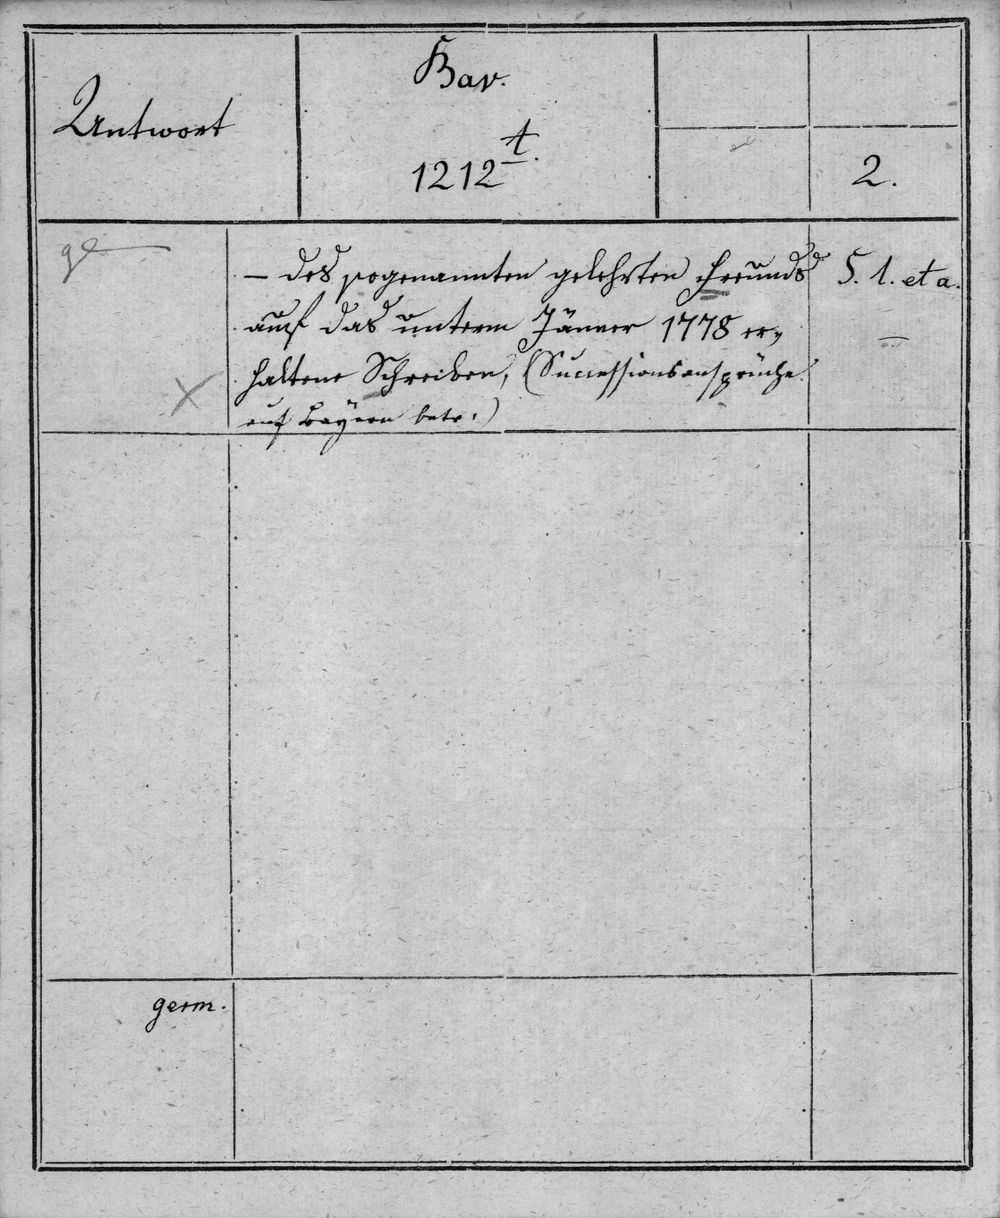 Antwort
Bav.
1212 t.
2.
— des sogenannten gelehrten Freunds
auf das unterm Jänner 1778 er-
haltene Schreiben, (Successionsansprüche
auf Bayern betr.)
S. l. et a.
germ.